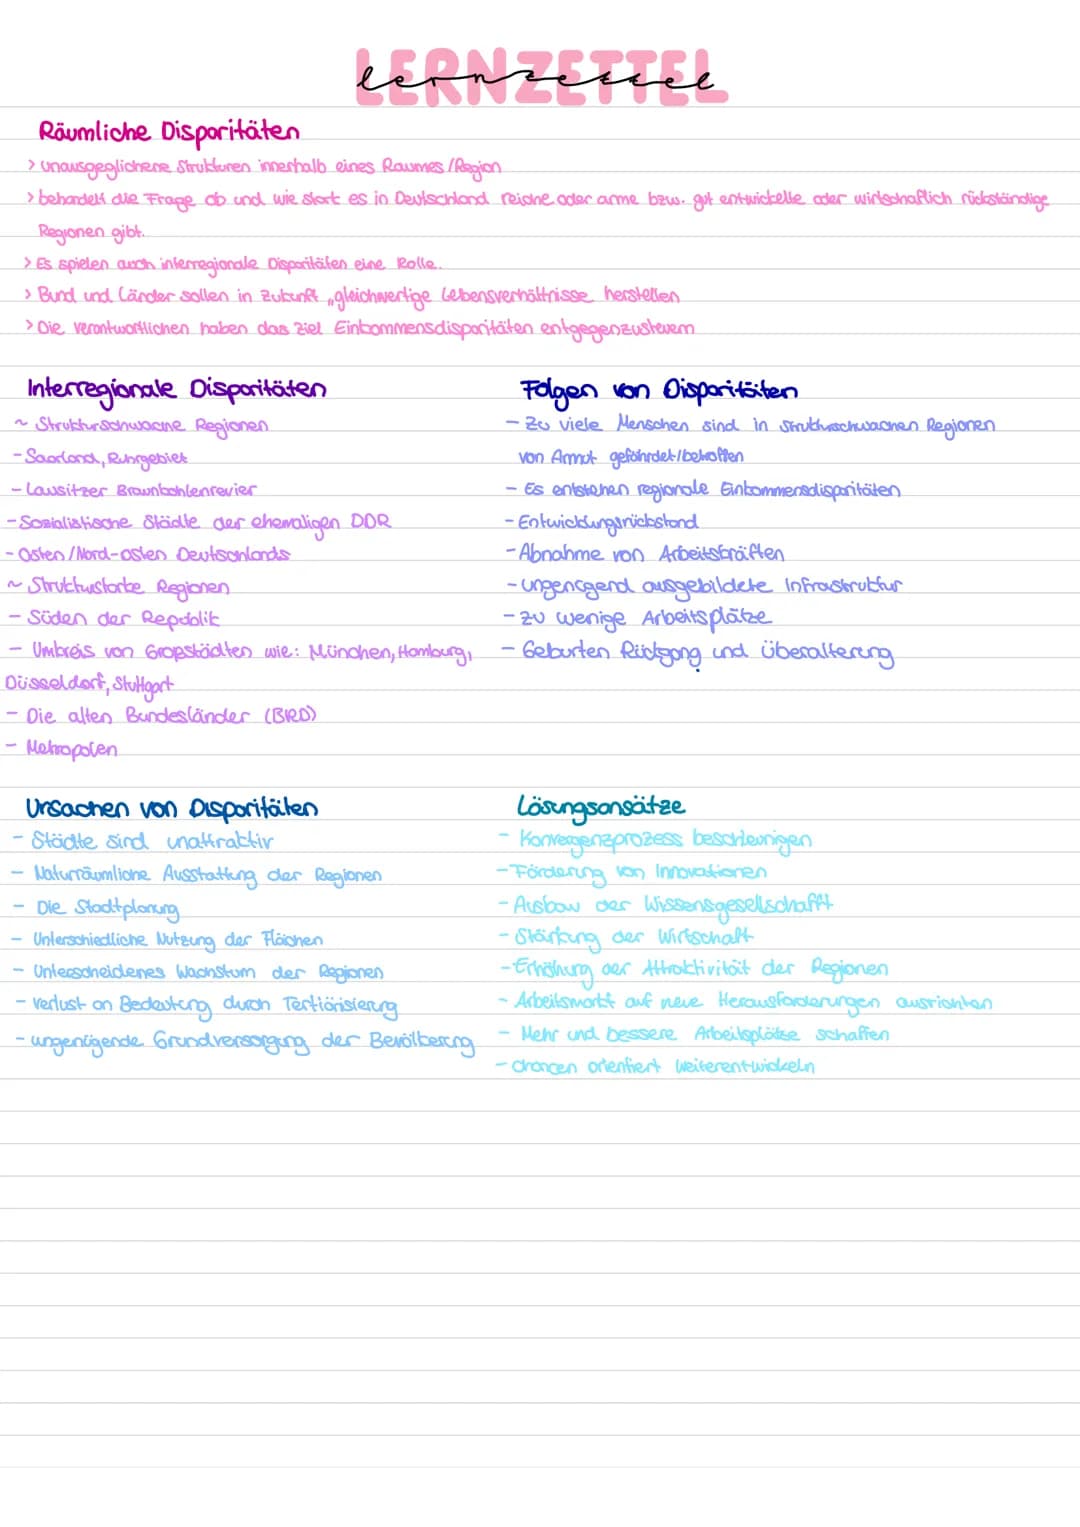 LERNZETTEL
lernzettel
Räumliche Disparitäten
> unausgeglichene Strukturen innerhalb eines Raumes/Region
> behandelt die Frage ob und wie stark es in Deutschland reiche oder arme bzw. gut entwickelte oder wirtschaftlich rückständige
Regionen gibt.
> Es spielen auch interregionale Disparitäten eine Rolle.
> Bund und Länder sollen in Zukunft „gleichwertige Lebensverhältnisse herstellen
> Die Verantwortlichen haben das Ziel Einkommensdisparitäten entgegenzusteuern
Interregionale Disparitäten
~ Strukturschwache Regionen
- Saarland, Ruhrgebiet
- Lausitzer Braunkohlenrevier
- Sozialistische Städte der ehemaligen DDR
- Osten/Nord-osten Deutschlands
~ Strukturstarke Regionen
- Süden der Republik
- Umkreis von Großstädten wie: München, Hamburg,
Düsseldorf, Stuttgart
- Die alten Bundesländer (BRD)
- Metropolen
Folgen von Disparitäten
- Zu viele Menschen sind in strukturschwachen Regionen
von Armut gefährdet/betroffen
- Es entstehen regionale Einkommensdisparitäten
- Entwicklungsrückstand
- Abnahme von Arbeitskräften
- ungenügend ausgebildete Infrastruktur
- zu wenige Arbeitsplätze
- Geburten Rückgang und Überalterung
Ursachen von Disparitäten
- Städte sind unattraktiv
- Naturräumliche Ausstattung der Regionen
- Die Stadtplanung
- Unterschiedliche Nutzung der Flächen
- Unterscheidenes Wachstum der Regionen
- verlust an Bedeutung durch Tertiärisierung
- ungenügende Grundversorgung der Bevölkerung
Lösungsansätze
- Konvergenzprozess beschleunigen
- Förderung von Innovationen
- Ausbau der Wissensgesellschafft
- Stärkung der Wirtschaft
- Erhöhung der Attraktivität der Regionen
- Arbeitsmarkt auf neue Herausforderungen ausrichten
- Mehr und bessere Arbeitsplätze schaffen
- chancen orientiert weiterentwickeln